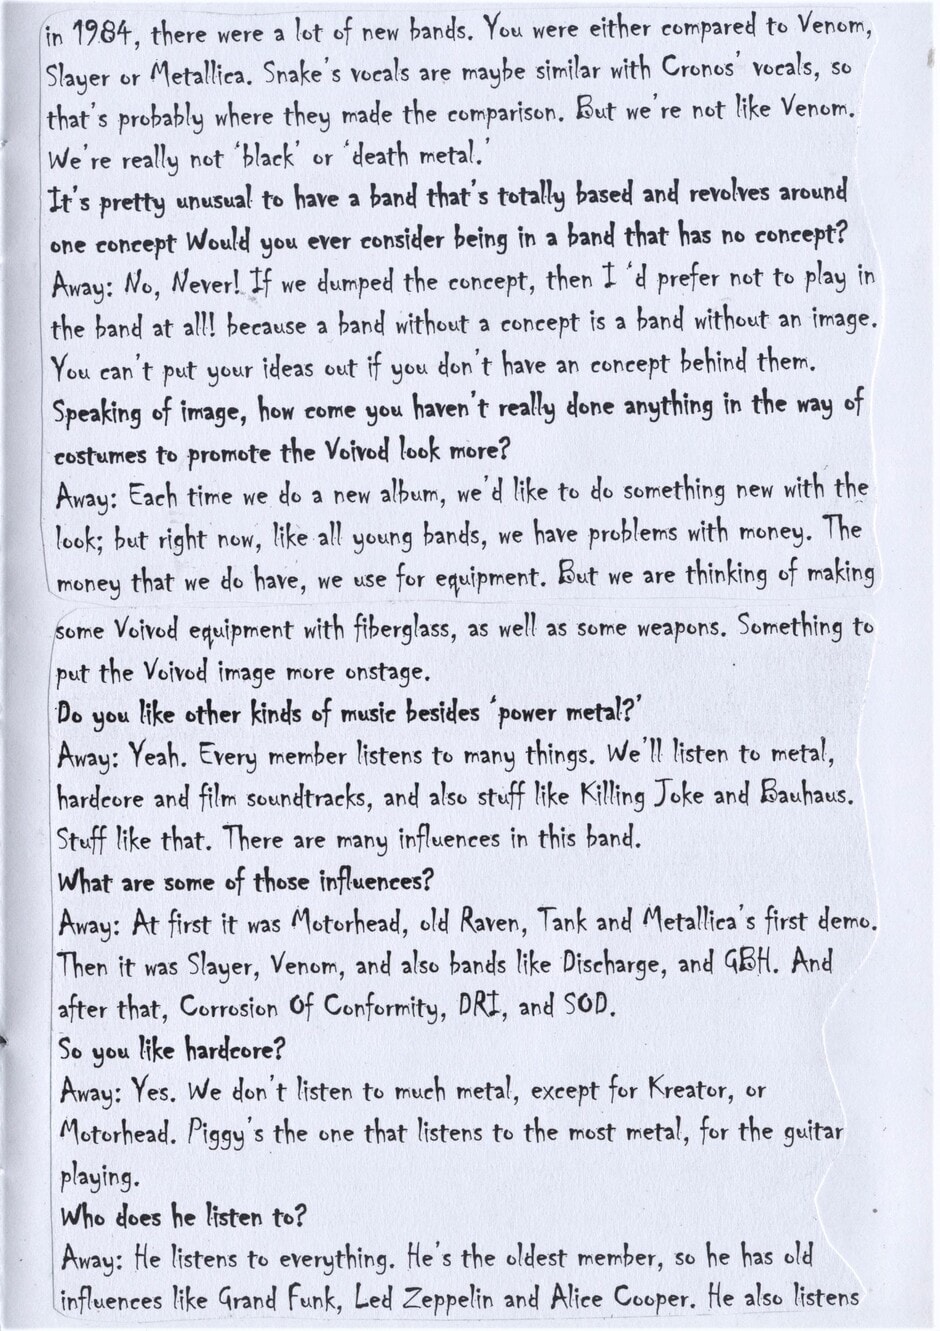 in 1984, there were a lot of new bands. You were either compared to Venom,
Slayer or Metallica. Snake's vocals are maybe similar with Cronos' vocals, so
that's probably where they made the comparison. But we're not like Venom.
We're really not 'black' or 'death metal.'
It's pretty unusual to have a band that's totally based and revolves around
one concept Would you ever consider being in a band that has no concept?
Away: No, Never! If we dumped the concept, then I 'd prefer not to play in
the band at all! because a band without a concept is a band without an image.
You can't put your ideas out if you don't have an concept behind them.
Speaking of image, how come you haven't really done anything in the way of
costumes to promote the Voivod look more?
Away: Each time we do a new album, we'd like to do something new with the
look; but right now, like all young bands, we have problems with money. The
money that we do have, we use for equipment. But we are thinking of making
some Voivod equipment with fiberglass, as well as some weapons. Something to
put the Voivod image more onstage.
Do you like other kinds of music besides 'power metal?'
Away: Yeah. Every member listens to many things. We'll listen to metal,
hardcore and film soundtracks, and also stuff like Killing Joke and Bauhaus.
Stuff like that. There are many influences in this band.
What are some of those influences?
Away: At first it was Motorhead, old Raven, Tank and Metallica's first demo.
Then it was Slayer, Venom, and also bands like Discharge, and GBH. And
after that, Corrosion Of Conformity, DRI, and SOD.
So you like hardcore?
Away: Yes. We don't listen to much metal, except for Kreator, or
Motorhead. Piggy's the one that listens to the most metal, for the guitar
playing.
Who does he listen to?
Away: He listens to everything. He's the oldest member, so he has old
influences like Grand Funk, Led Zeppelin and Alice Cooper. He also listens